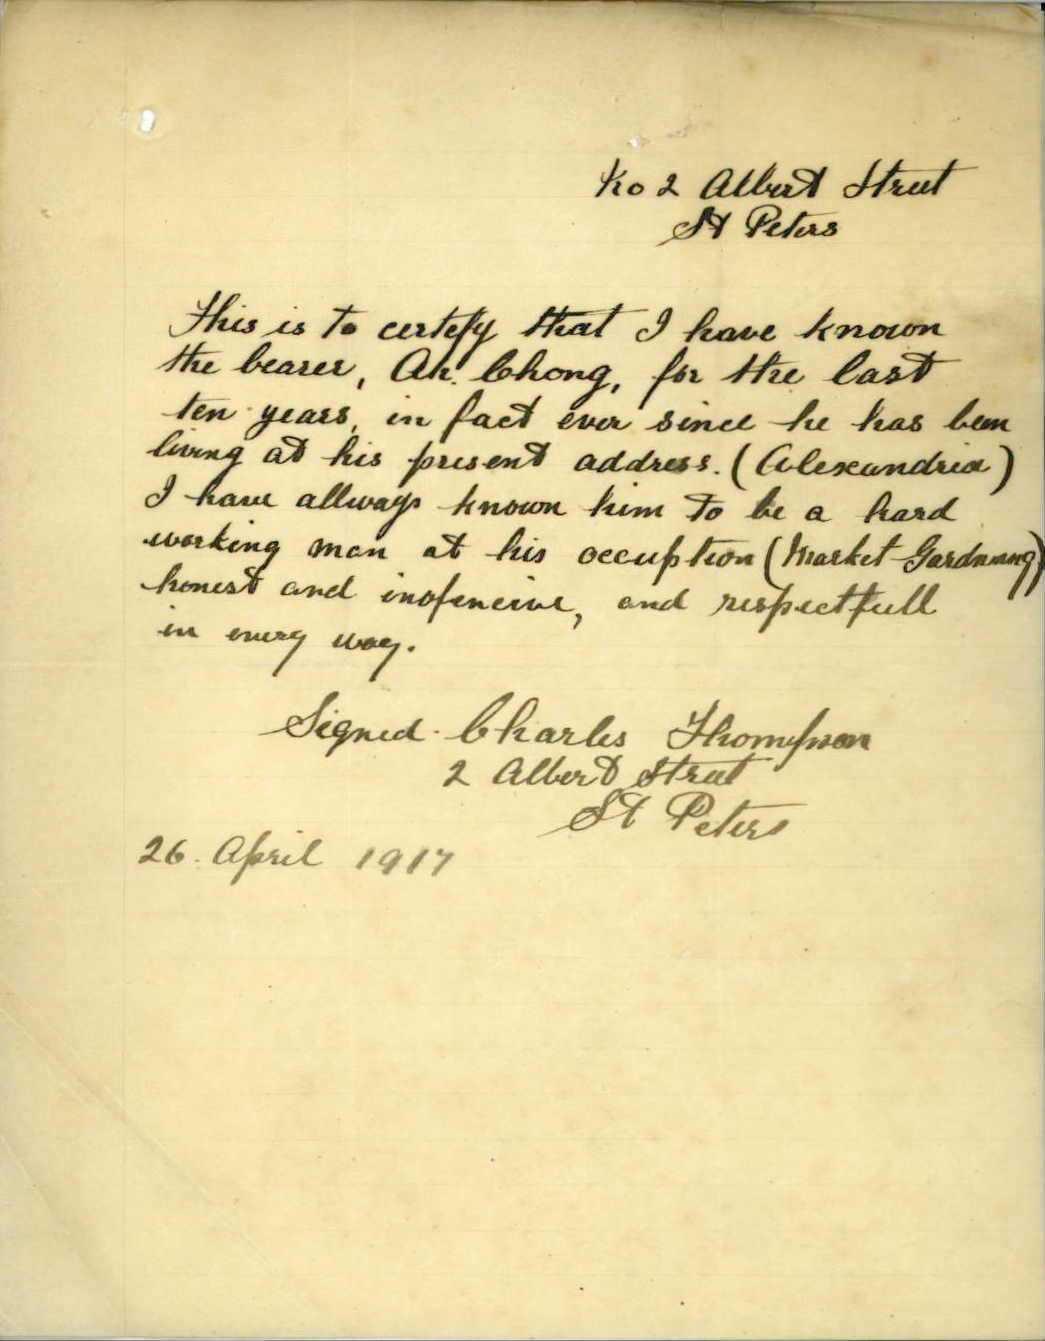 No 2 Albert Street
St Peters
This is to certefy that I have known
the bearer, Ah. Chong, for the last
ten years, in fact ever since he has been
living at his present address. (Alexandria)
I have allways known him to be a hard
working man at his occuption (Market Gardnning)
honest and inofencive, and respectfull
in every way.
Signed. Charles Thompson
2 Albert Street
St Peters
26. April 1917